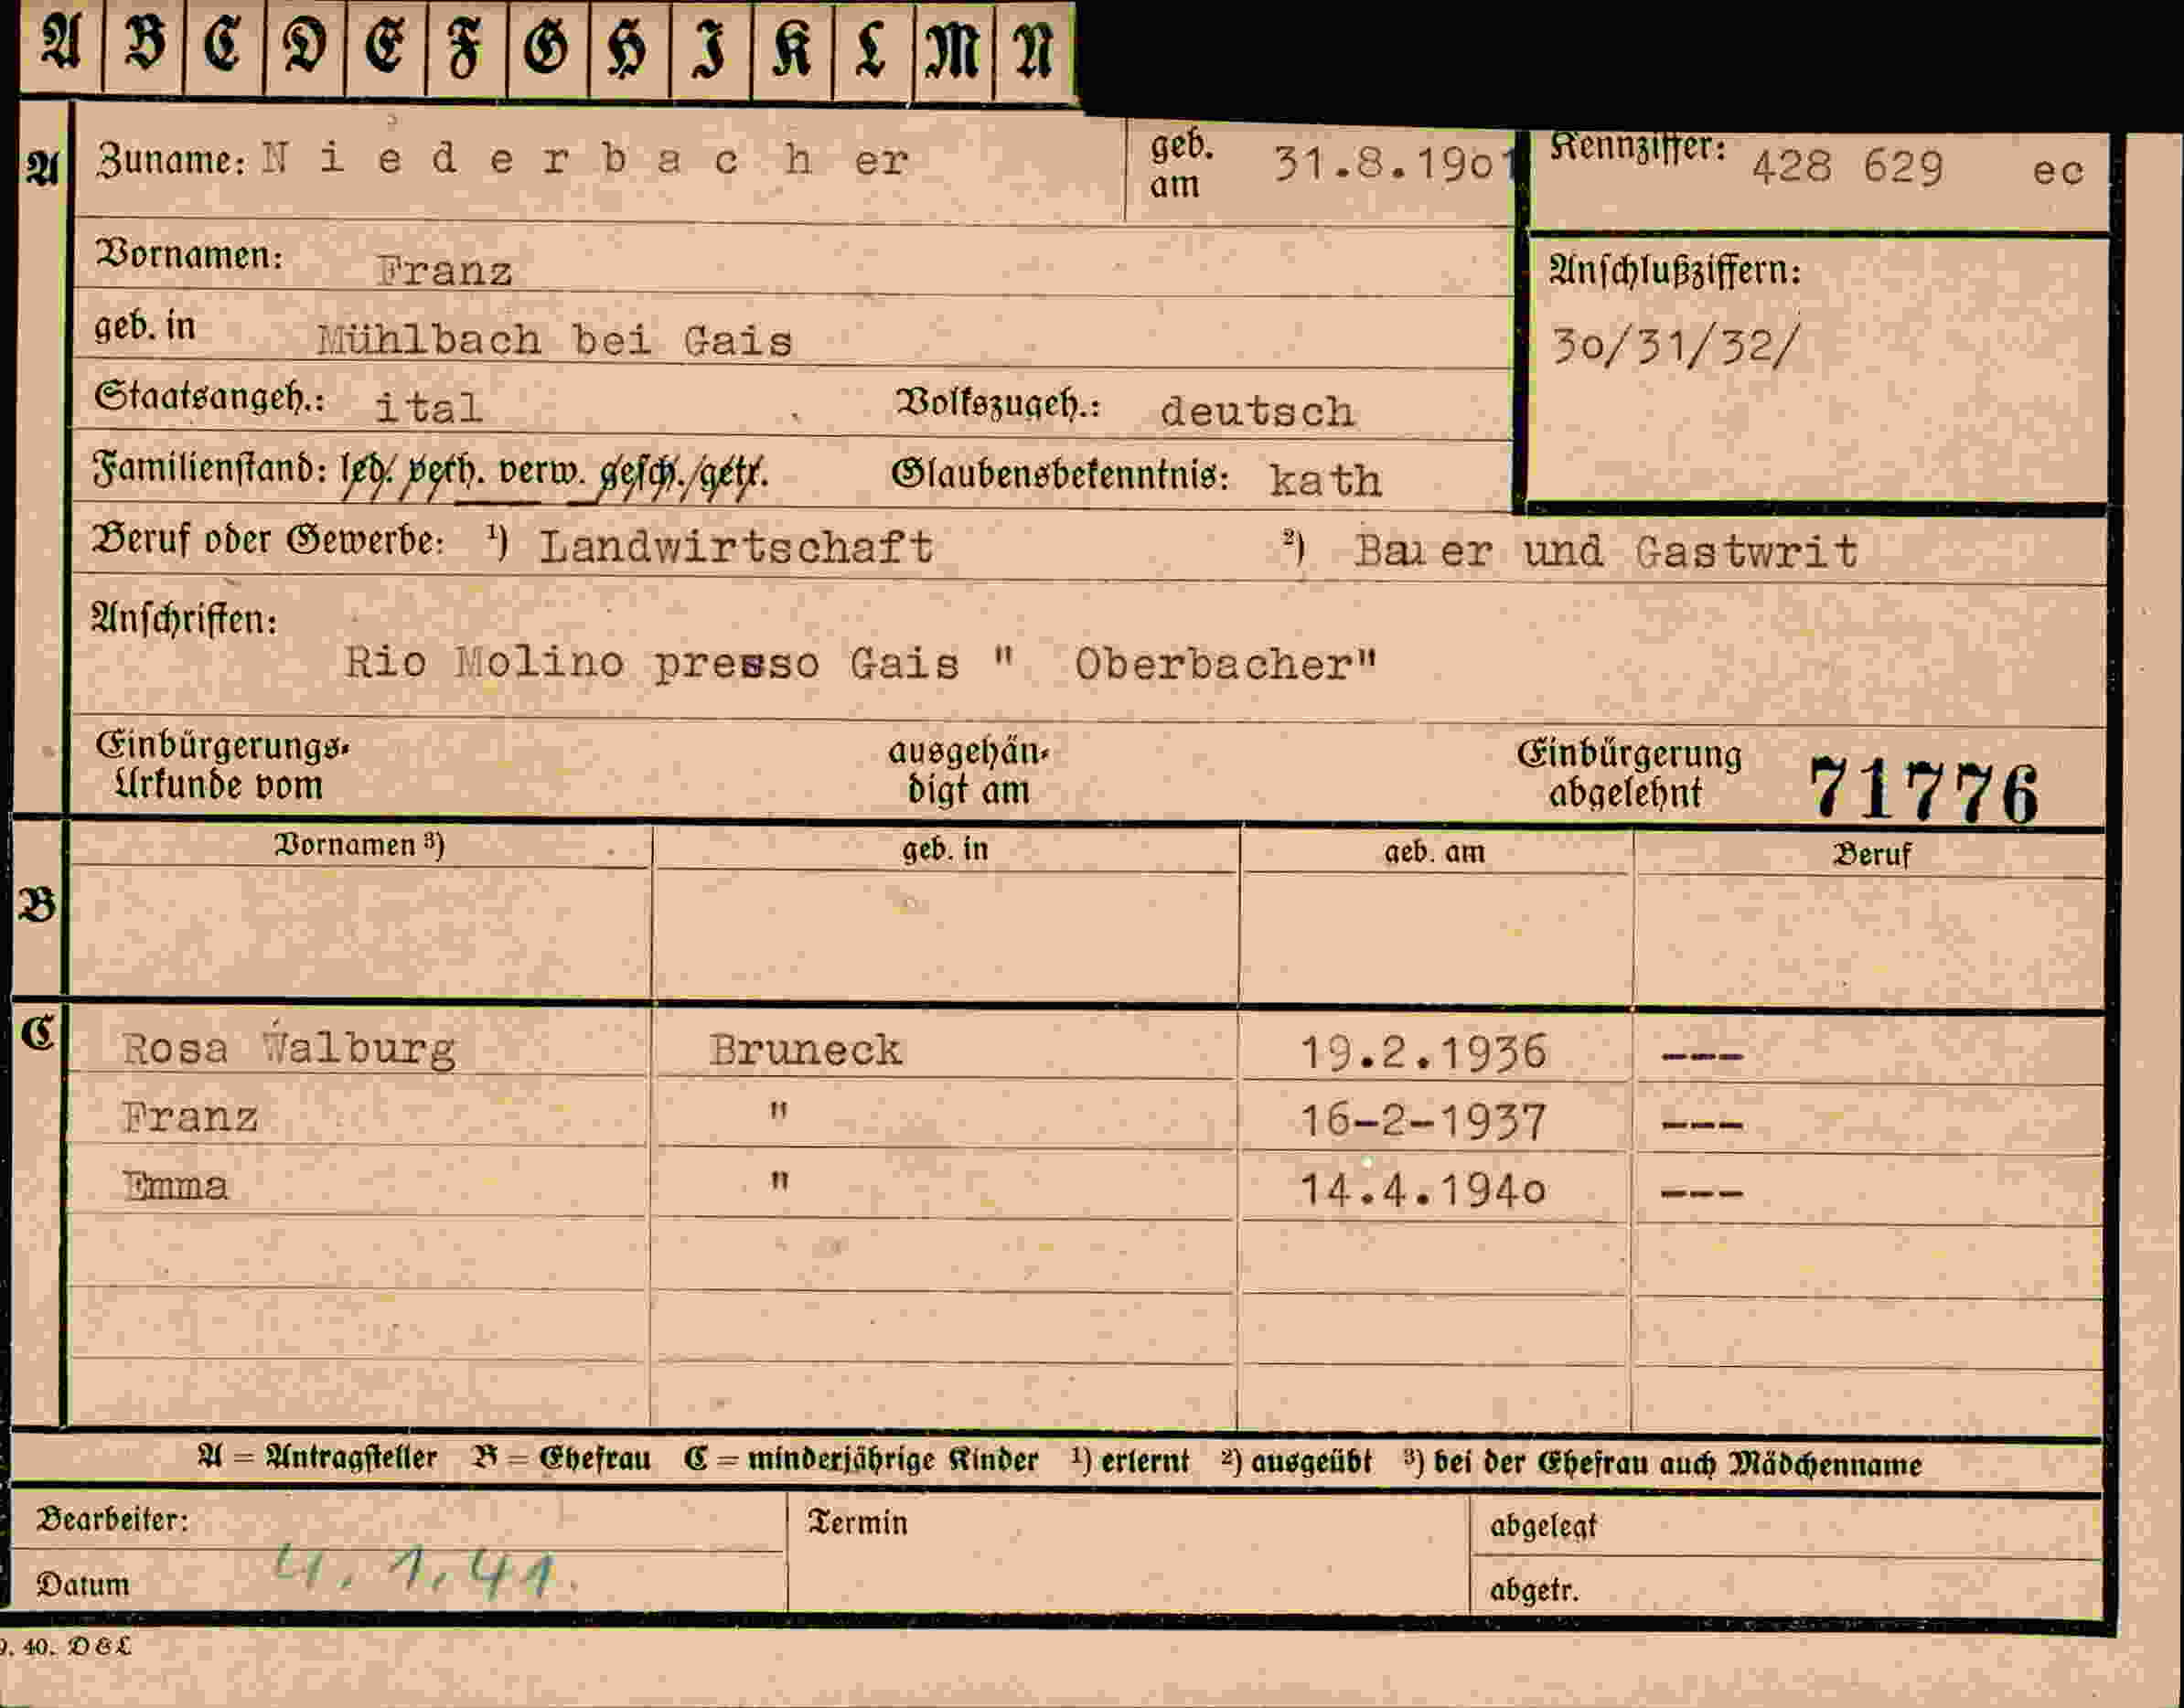 A B C D E F G H I K L M N
A Zuname: N i e d e r b a c h er geb. am 31.8.1901 Kennziffer: 428 629 ec
Vornamen: Franz
Anschlußziffern:
geb. in Mühlbach bei Gais
30/31/32/
Staatsangeh.: ital Volkszugeh.: deutsch
Familienstand: led. verh. verw. gesch./getr. Glaubensbekenntnis: kath
Beruf oder Gewerbe: ¹) Landwirtschaft ²) Bauer und Gastwrit
Anschriften:
Rio Molino presso Gais " Oberbacher"
Einbürgerungs- ausgehän- Einbürgerung
Urkunde vom digt am abgelehnt 71776
Vornamen ³) geb. in geb. am Beruf
B
C Rosa Walburg Bruneck 19.2.1936 ---
Franz " 16-2-1937 ---
Emma " 14.4.1940 ---
A = Antragsteller B = Ehefrau C = minderjährige Kinder ¹) erlernt ²) ausgeübt ³) bei der Ehefrau auch Mädchenname
Bearbeiter: Termin abgelegt
Datum 4.1.41. abgetr.
9. 40. D&L